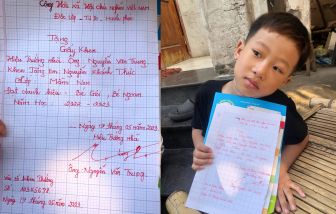 Cộng Hòa xã hội chủ nghĩa việt Nam
Độc lập - Tự do - Hạnh phúc
Tặng
Giấy Khen
Hiệu Trưởng nhà: Ông Nguyễn Văn Trung
Khen Tặng em Nguyễn Khánh Thức
Lớp: Mầm Non
Đạt danh hiệu: Bé Giỏi, Bé Ngoan.
Năm Học: 2022 - 2023
Ngày 19 tháng 05 2023
Hiệu Trưởng nhà
Ông Nguyễn Văn Trung
Số:
Ngày 19 tháng 05 năm 2023